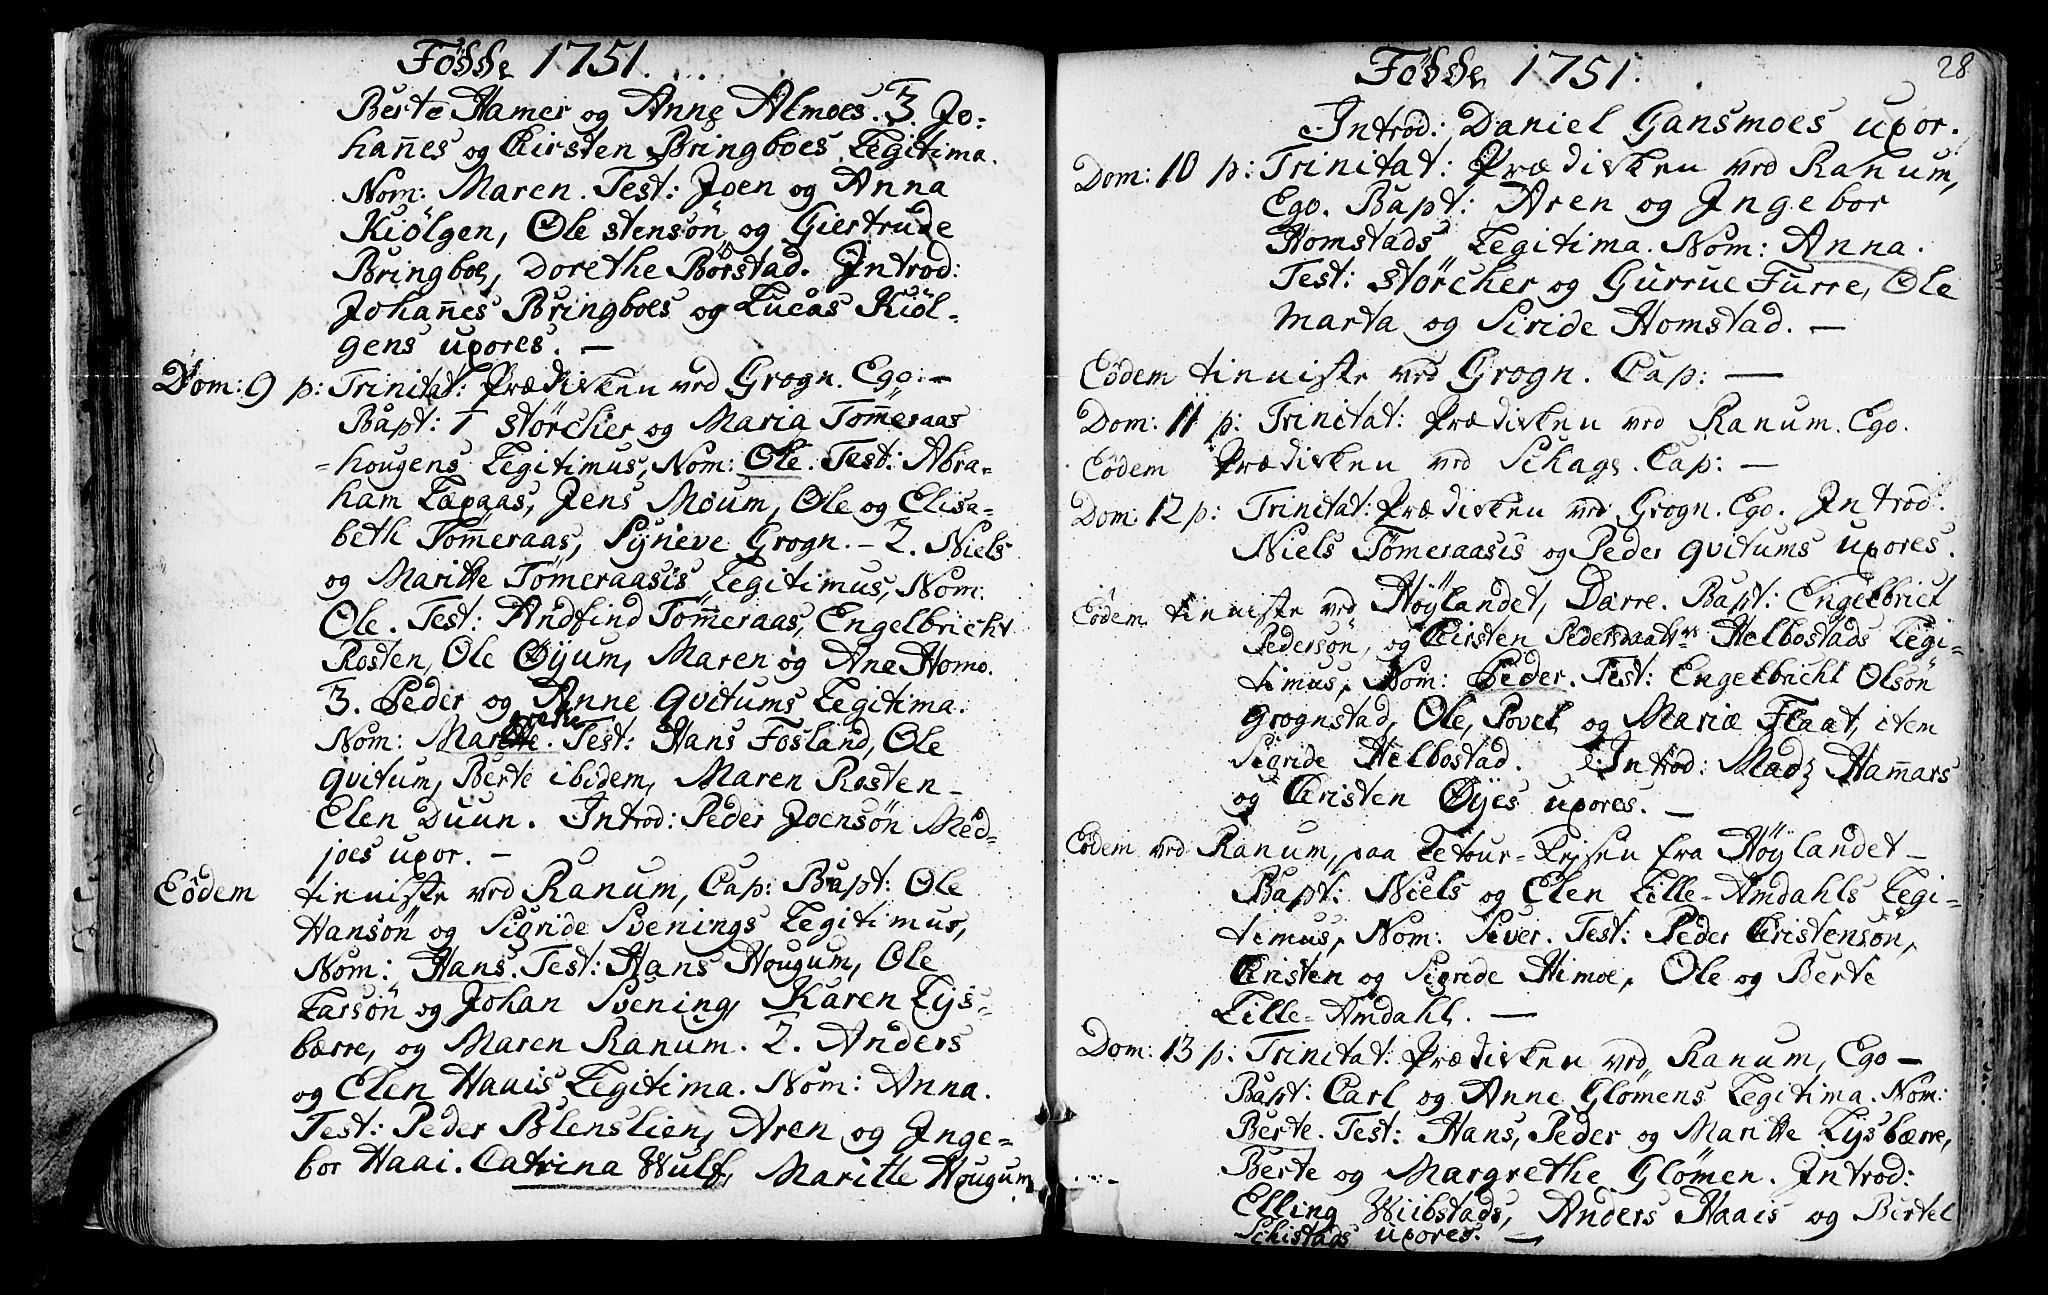 Fødde 1751.
Berte Hamer og Anne Almoes. 3. Jo-
hañes og Kirsten Bringboes Legitima.
Nom: Maren. Test: Joen og Anna
Kiölgen, Ole stensön og Giertrude
Bringboe, Dorethe Börstad. Introd:
Johañes Bringboes og Lucas Kiöl-
gens uxores. —
Dom: 9 p: Trinitat: Prædiken ved Grogn. Ego. —
Bapt: 1 Störcher og Maria Tom̃eraas
-hougens Legitimus, Nom: Ole. Test: Abra-
ham Lexaas, Jens Moum, Ole og Elisa-
beth Töm̃eraas, Syneve Grogn. — 2. Niels
og Maritte Töm̃eraasis Legitimus, Nom:
Ole. Test: Andfind Tom̃eraas, Engelbricht
Rosten, Ole Öyum, Maren og Ane Homo.
3. Peder og Anne Qvitums Legitima.
Nom: Margrete. Test: Hans Fosland, Ole
Qvitum, Berte ibidem, Maren Rosten —
Elen Duun. Introd: Peder Joensön Med-
joes uxor. —
Eodem tieniste ved Ranum, Cap: Bapt: Ole
Hansön og Sigride Svenings Legitimus,
Nom: Hans. Test: Hans Hougum, Ole
Larsön og Johan Svening, Karen Lys-
bærre, og Maren Ranum. 2. Anders
og Elen Haais Legitima. Nom: Anna.
Test: Peder Blenslien, Aren og Inge-
bor Haai. Catrina Wulf, Maritte Hougum.
Fødde 1751.
28
Introd: Daniel Gansmoes uxor.
Dom: 10 p: Trinitat: Prædiken ved Ranum,
Ego. Bapt: Aren og Ingebor
Homstads Legitima. Nom: Anna.
Test: Störcher og Gurrue Furre, Ole
Marta og Siride Homstad. —
Eodem tieniste ved Grogn. Cap: —
Dom: 11 p: Trinitat: Prædiken ved Ranum. Ego.
Eodem Prædiken ved Schage. Cap: —
Dom: 12 p: Trinitat: Prædiken ved Grogn. Ego. Introd:
Niels Töm̃eraasis og Peder Qvitums uxores.
Eodem tieniste ved Höylandet, Darre. Bapt: Engelbrict
Pedersön, og Kirsten Pedersdaatters Helbostads Legi-
timus, Nom: Peder. Test: Engelbricht Olsön
Grognstad, Ole, Povel og Mariæ Flaat, item
Sigride Helbostad. Introd: Madz Ham̃ars
og Christen Öyes uxores. —
Eodem ved Ranum, paa Retour-Reisen fra Höylandet —
Bapt: Niels og Elen Lille-Amdahls Legi-
timus, Nom: Siver. Test: Peder Christensön,
Christen og Sigride Himoe, Ole og Berte
Lille-Amdahl. —
Dom: 13 p: Trinitat: Prædiken ved Ranum, Ego —
Bapt: Carl og Anne Glömens Legitima. Nom:
Berte. Test: Hans, Peder og Maritte Lysbærre,
Berte og Margrethe Glömen. Introd:
Elling Wiibstads, Anders Haais og Bertel
Schistads uxores. —